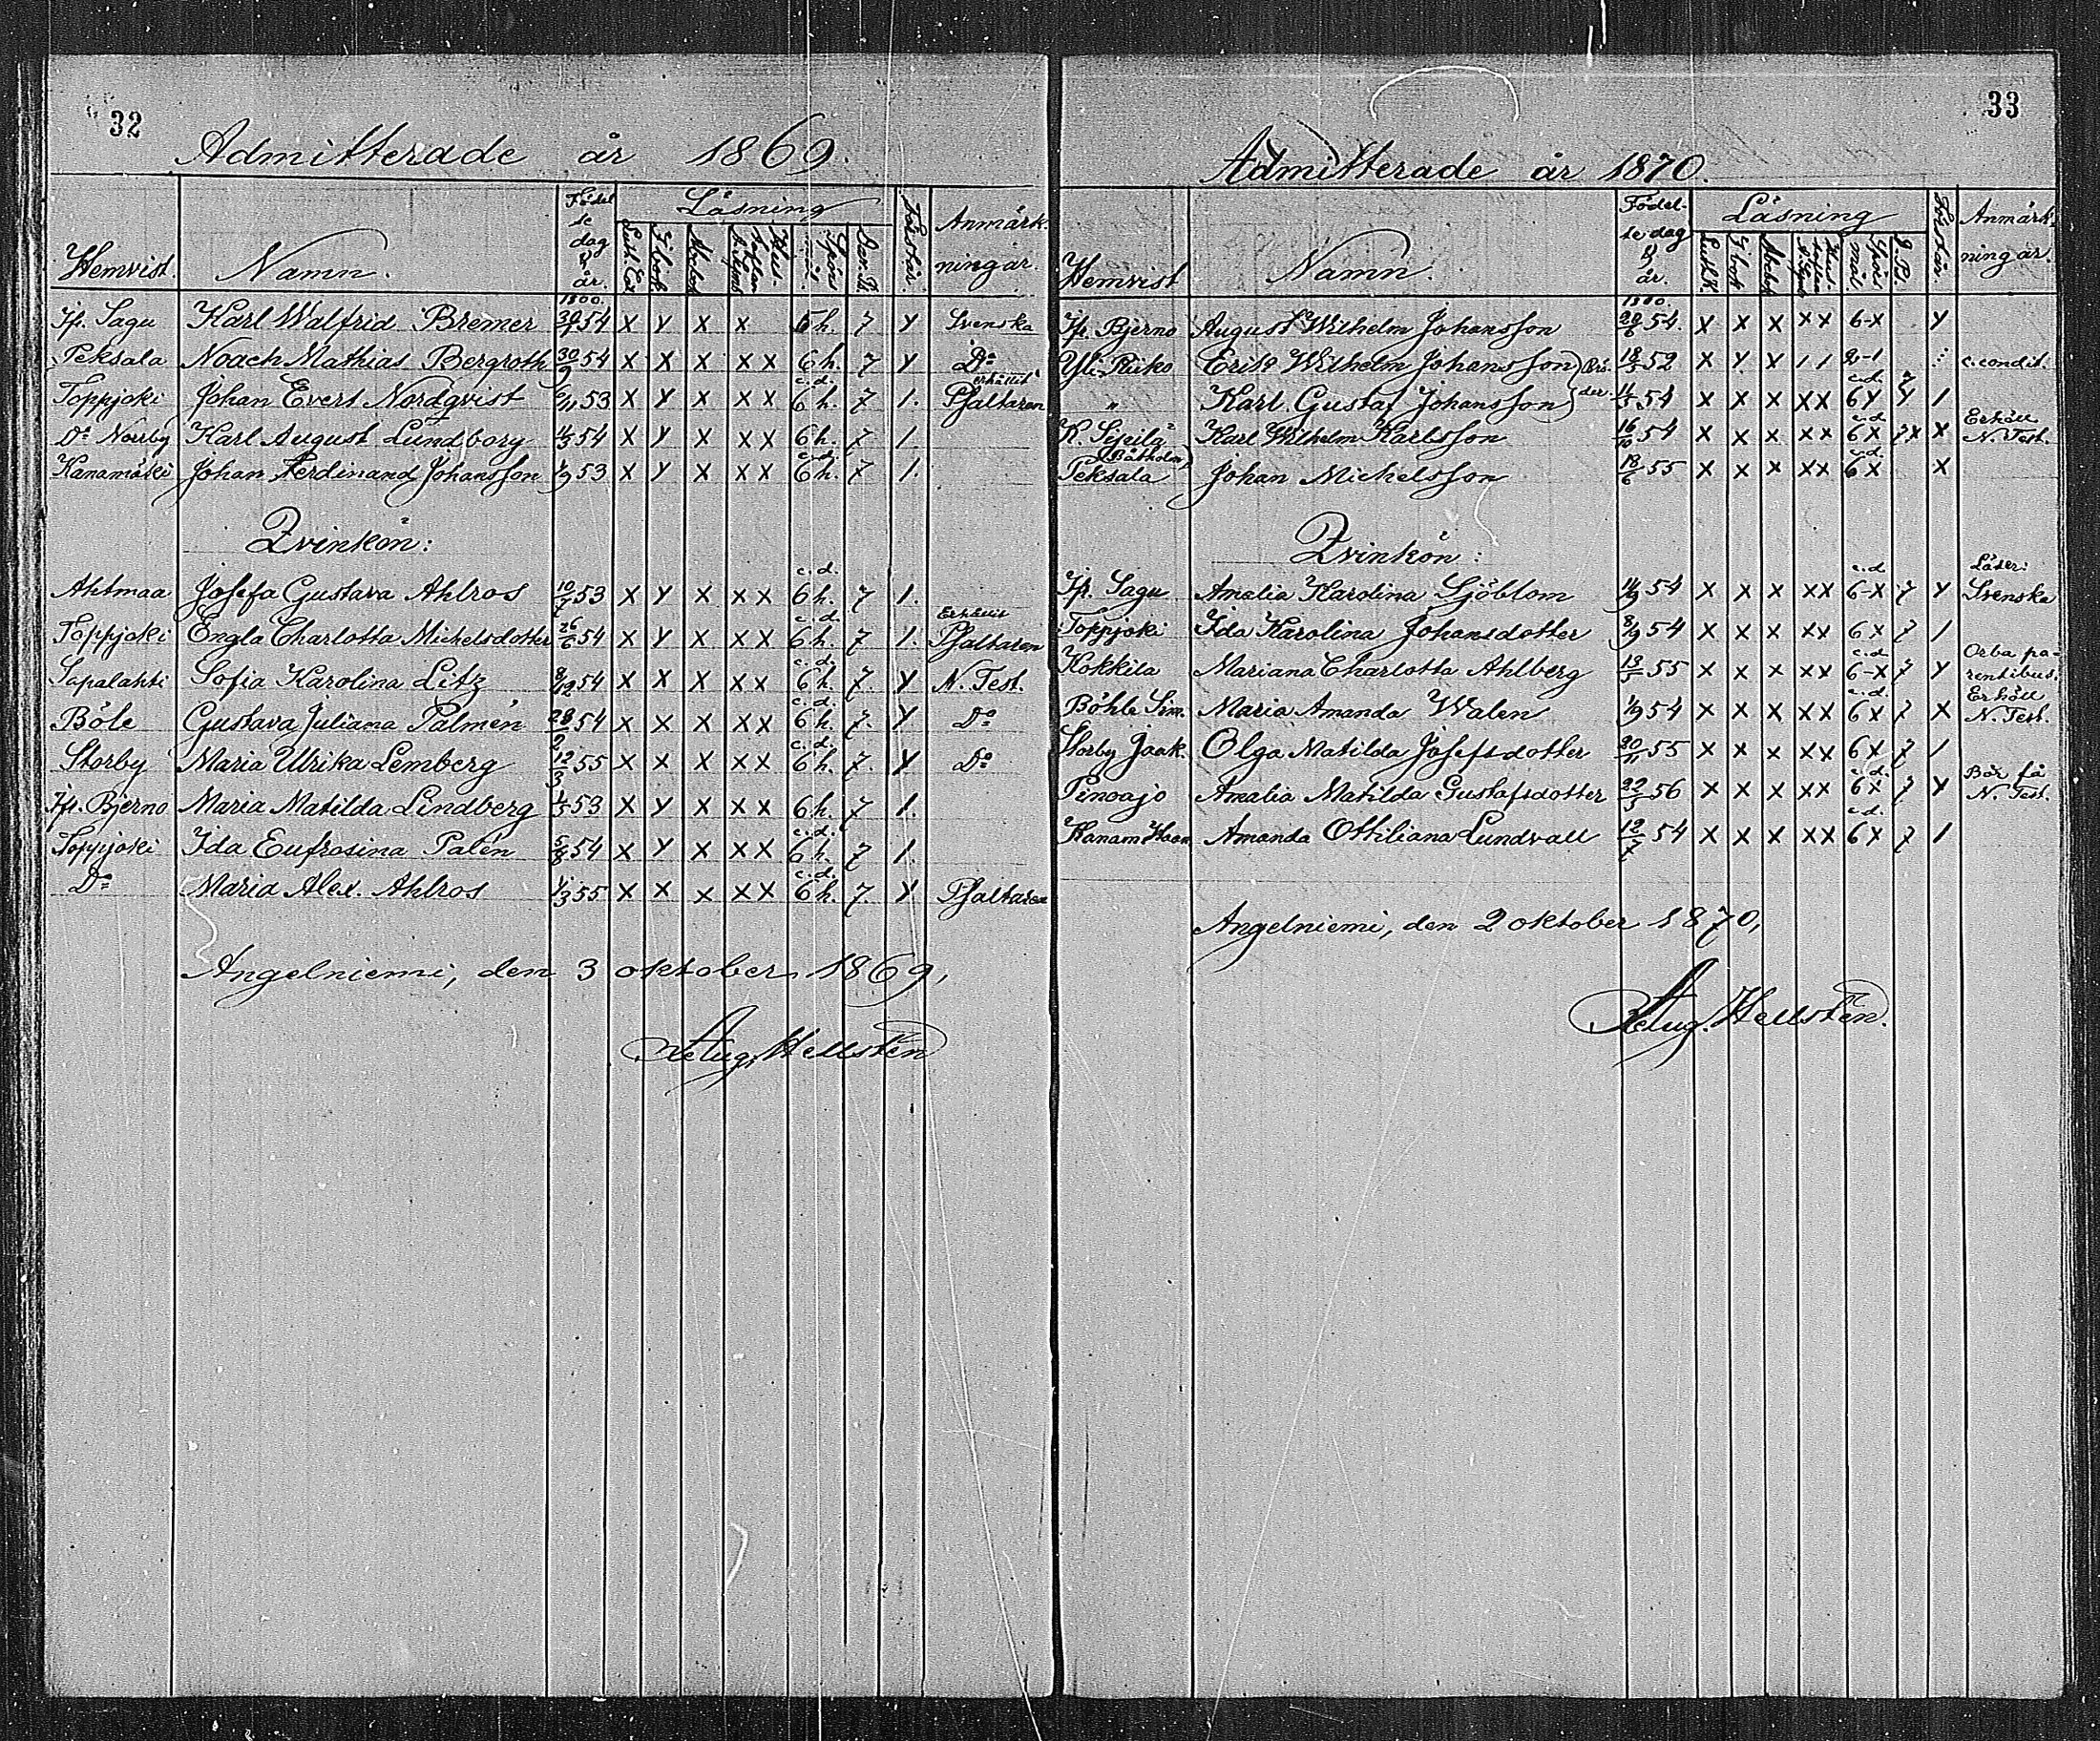 32
Admitterade år 1869.
Hemvist. Namn. Födelse dag & år. Läsning Förstår. Anmärkningar.
1800.
Ifr. Sagu Karl Walfrid Bremer 54 x y x x 5h. 7 y Svenska
Peksala Noach Mathias Bergroth 30/9 54 x x x x x 6h. 7 y Do
Toppjoki Johan Evert Nordqvist 6/11 53 x y x x x c.d. 6h. 7 1. erhållit Psaltaren
Do Norrby Karl August Lundborg 54 x y x x x 6h. 7 1.
Kanamäki Johan Ferdinand Johansson 1/9 53 x y x x x c.d. 6h. 7 1.
Qvinkön:
Ahtmaa Josefa Gustava Ahlros 10/7 53 x y x x x c.d. 6h. 7 1.
Toppjoki Engla Charlotta Michelsdotter 26/6 54 x y x x x c.d. 6h. 7 1. Erhållit Psaltaren
Sapalahti Sofia Karolina Litz 8/12 54 x x x x x c.d. 6h. 7. y N. Test.
Böle Gustava Juliana Palmén 28/2 54 x x x x x c.d. 6h. 7. y Do
Storby Maria Ulrika Lemberg 12/3 55 x x x x x c.d. 6h. 7. y Do
Ifr. Bjerno Maria Matilda Lindberg 1/5 53 x y x x x 6h. 7 1.
Toppjoki Ida Eufrosina Palén 5/8 54 x y x x x c.d. 6h. 7 1.
Do Maria Alex. Ahlros 1/3 55 x x x x x c.d. 6h. 7. y Psaltaren
Angelniemi, den 3 oktober 1869,
Aug. Hellstén
33
Admitterade år 1870.
Hemvist Namn. Födelsedag & år. Läsning Förstår. Anmärkningar.
1800.
Ifr. Bjerno August Wilhelm Johansson 28/6 54. x x x x x 6-x y
Yli-Riiko Erik Wilhelm Johansson 18/5 52 x y x 1 1 2-1 c. condit.
" Karl Gustaf Johansson Bröder. 54 x x x x x c.d. 6y y 1
K. Sipilä Karl Wilhelm Karlsson 16/10 54 x x x x x c.d. 6x 7x x Erhöll N. Test.
Peksala (Båtholm) Johan Michelsson 18/6 55 x x x x x c.d. 6x x
Qvinkön:
Ifr. Sagu Amalia Karolina Sjöblom 14/9 54 x x x x x c.d. 6-x 7 y Läser: Svenska
Toppjoki Ida Karolina Johansdotter 8/9 54 x x x x x 6x 7 1
Kokkila Mariana Charlotta Ahlberg 13/5 55 x x x x x c.d. 6-x 7 y Orba parentibus.
Böhle Sim. Maria Amanda Walen 1/9 54 x x x x x c.d. 6x 7 x Erhöll N. Test.
Storby Jaak. Olga Matilda Josefsdotter 20/11 55 x x x x x 6x 7 1
Pinoajo Amalia Matilda Gustafsdotter 22/5 56 x x x x x c.d. 6x 7 y Bör få N. Test.
Kanam. Amanda Ottiliana Lundvall 12/7 54 x x x x x c.d. 6x 7 1
Angelniemi, den 2 oktober 1870,
Aug. Hellstén.